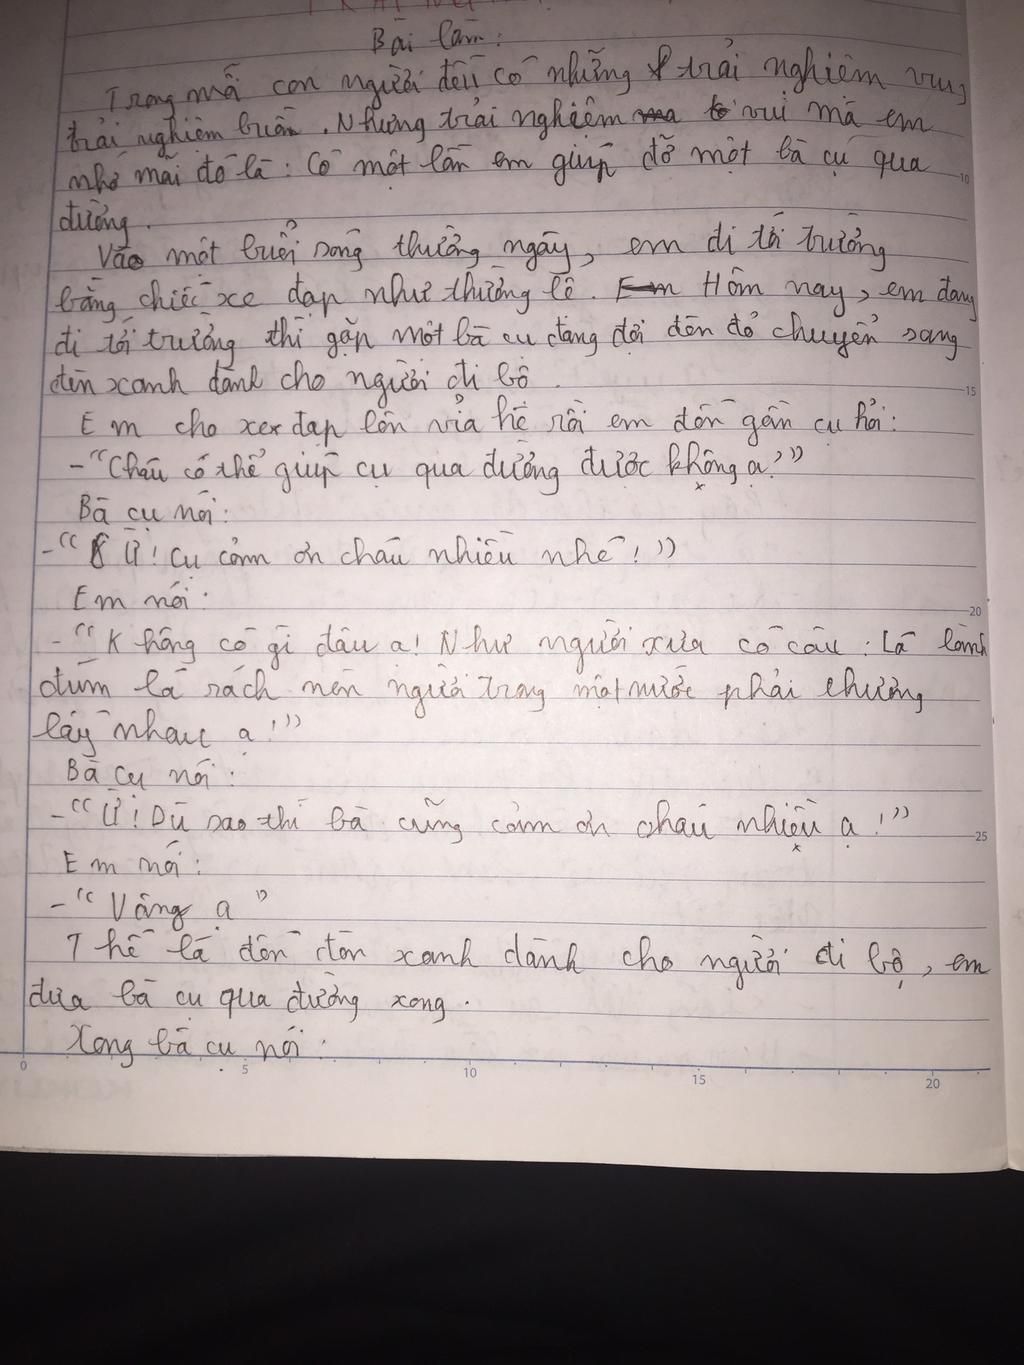 Bài làm:
Trong mỗi con người đều có những trải nghiệm vui,
trải nghiệm buồn. Nhưng trải nghiệm vui mà em
nhớ mãi đó là: Có một lần em giúp đỡ một bà cụ qua
đường.
Vào một buổi sáng thường ngày, em đi tới trường
bằng chiếc xe đạp như thường lệ. Hôm nay, em đang
đi tới trường thì gặp một bà cụ đang đợi đèn đỏ chuyển sang
đèn xanh dành cho người đi bộ.
Em cho xe đạp lên vỉa hè rồi em đến gần cụ hỏi:
-"Cháu có thể giúp cụ qua đường được không ạ?"
Bà cụ nói:
-"Ừ! Cụ cảm ơn cháu nhiều nhé!"
Em nói:
-"Không có gì đâu ạ! Như người xưa có câu: Lá lành
đùm lá rách nên người trong một nước phải thương
lấy nhau ạ!"
Bà cụ nói:
-"Ừ! Dù sao thì bà cũng cảm ơn cháu nhiều ạ!"
Em nói:
-"Vâng ạ"
Thế là đến đèn xanh dành cho người đi bộ, em
đưa bà cụ qua đường xong.
Xong bà cụ nói:
0 5 10 15 20
10
15
20
25